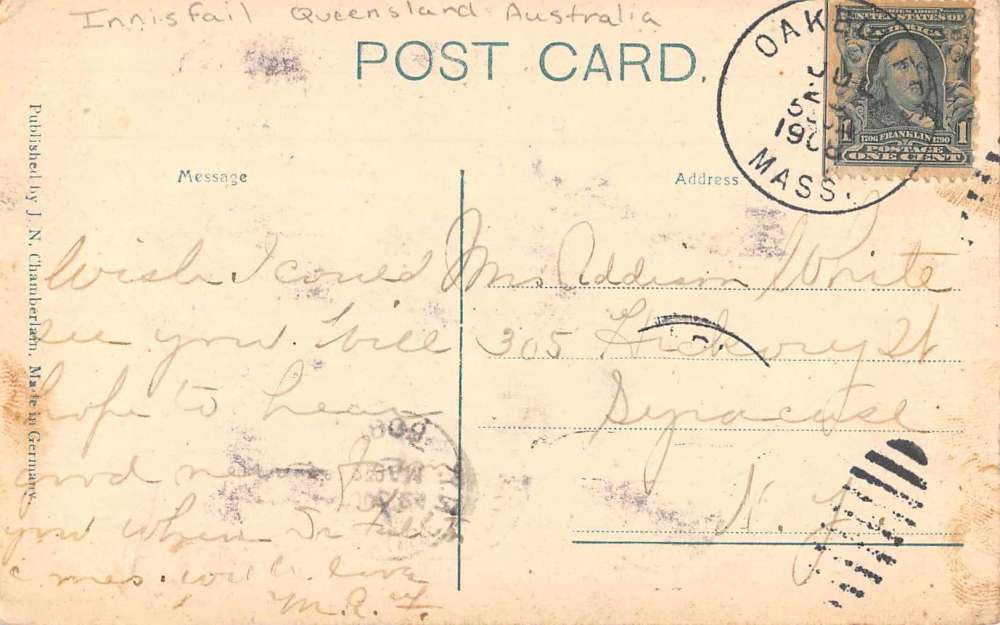 Innisfail Queensland Australia
POST CARD.
OAK
5
1908
MASS.
UNITED STATES OF
AMERICA
1 1706 FRANKLIN 1790 1
POSTAGE
ONE CENT
Published by J. N. Chamberlain, Made in Germany.
Message
Address
Wish I could
see you. Will
hope to hear
good news from
you when Dr
comes. with love
Addison White
305 Hickory St
Syracuse
N. Y.